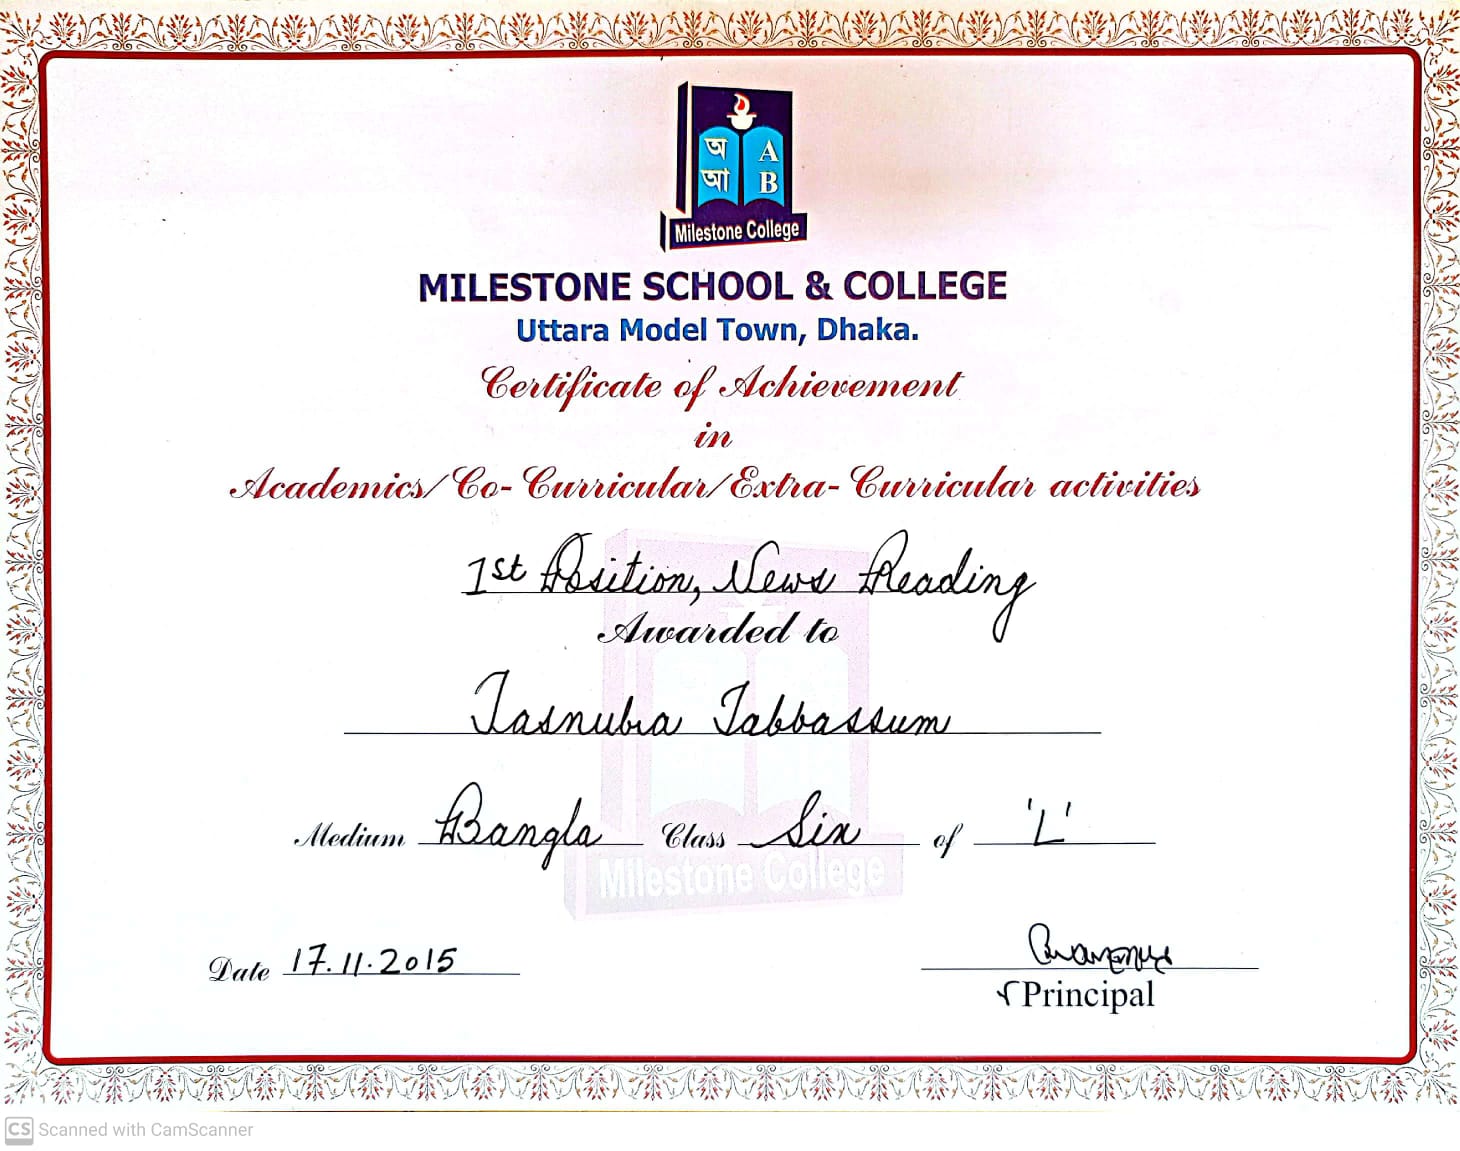 অ A
আ B
Milestone College
MILESTONE SCHOOL & COLLEGE
Uttara Model Town, Dhaka.
Certificate of Achievement
in
Academics/Co-Curricular/Extra-Curricular activities
1st Position, News Reading
Awarded to
Tasnubia Tabbassum
Medium Bangla Class Six of 'L'
Milestone College
Date 17.11.2015
Principal
CS Scanned with CamScanner